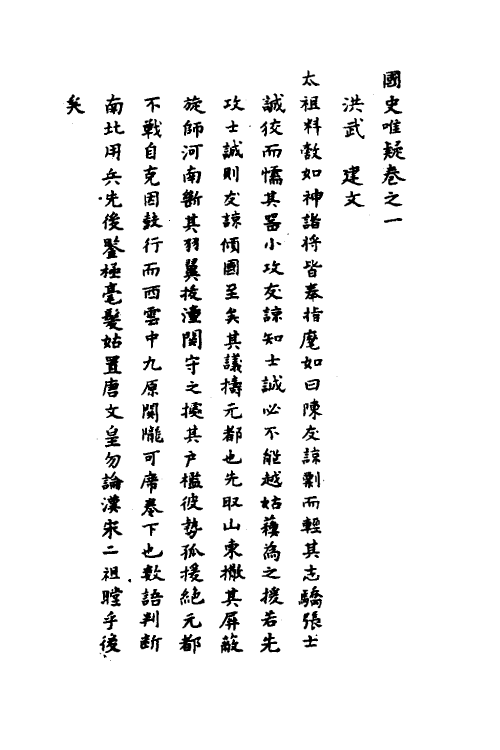 國史唯疑卷之一
洪武　建文
太祖料敵如神諸將皆奉指麾如曰陳友諒剽而輕其志驕張士
誠狡而懦其器小攻友諒知士誠必不能越姑蘇為之援若先
攻士誠則友諒傾國至矣其議擣元都也先取山東撤其屏蔽
旋師河南斷其羽翼拔潼關守之據其戶檻彼勢孤援絕元都
不戰自克因鼓行而西雲中九原關隴可席卷下也數語判斷
南北用兵先後鑒極毫髮姑置唐文皇勿論漢宋二祖瞠乎後
矣